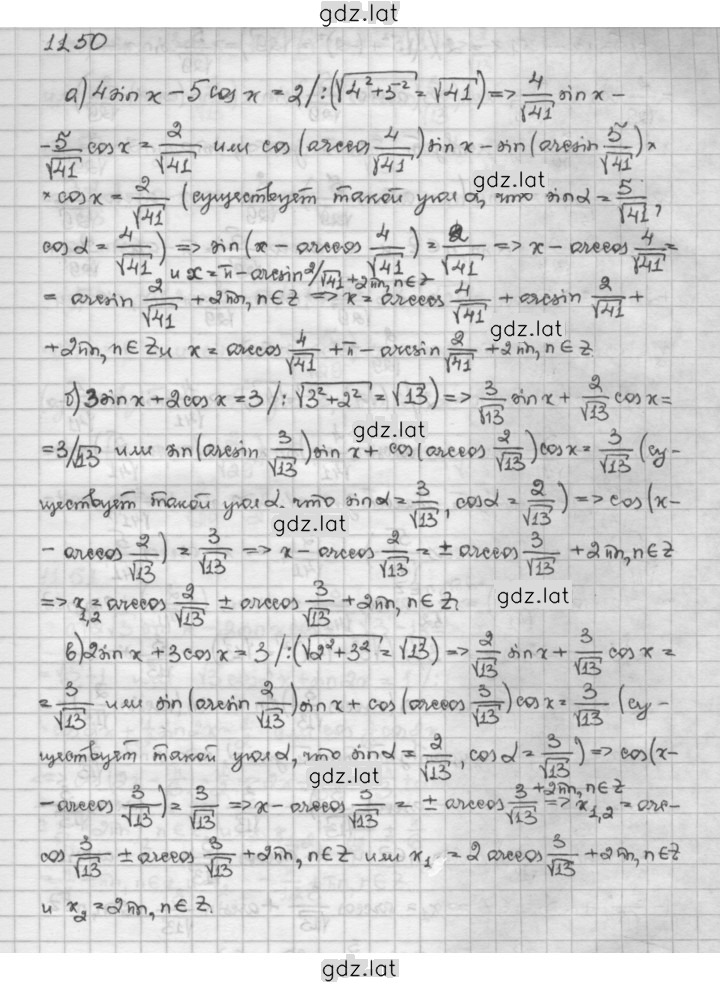 gdz.lat
11.50
а) 4 sin x − 5 cos x = 2 /:(√(4²+5²) = √41) => 4/√41 sin x −
− 5/√41 cos x = 2/√41 или cos (arccos 4/√41) sin x − sin (arcsin 5/√41) ×
gdz.lat
× cos x = 2/√41 (существует такой угол α, что sin α = 5/√41,
cos α = 4/√41) => sin (x − arccos 4/√41) = 2/√41 => x − arccos 4/√41 =
и x = π − arcsin 2/√41 + 2πn, n∈Z
= arcsin 2/√41 + 2πn, n∈Z => x = arccos 4/√41 + arcsin 2/√41 +
gdz.lat
+ 2πn, n∈Z и x = arccos 4/√41 + π − arcsin 2/√41 + 2πn, n∈Z
б) 3 sin x + 2 cos x = 3 /: √(3²+2²) = √13) => 3/√13 sin x + 2/√13 cos x =
gdz.lat
= 3/√13 или sin (arcsin 3/√13) sin x + cos (arccos 2/√13) cos x = 3/√13 (су-
ществует такой угол α, что sin α = 3/√13, cos α = 2/√13) => cos (x−
gdz.lat
− arccos 2/√13) = 3/√13 => x − arccos 2/√13 = ± arccos 3/√13 + 2πn, n∈Z
=> x₁,₂ = arccos 2/√13 ± arccos 3/√13 + 2πn, n∈Z.
gdz.lat
в) 2 sin x + 3 cos x = 3 /:(√(2²+3²) = √13) => 2/√13 sin x + 3/√13 cos x =
= 3/√13 или sin (arcsin 2/√13) sin x + cos (arccos 3/√13) cos x = 3/√13 (су-
ществует такой угол α, что sin α = 2/√13, cos α = 3/√13) => cos (x−
gdz.lat
− arccos 3/√13) = 3/√13 => x − arccos 3/√13 = ± arccos 3/√13 + 2πn, n∈Z => x₁,₂ = arc-
cos 3/√13 ± arccos 3/√13 + 2πn, n∈Z или x₁ = 2 arccos 3/√13 + 2πn, n∈Z
gdz.lat
и x₂ = 2πn, n∈Z.
gdz.lat